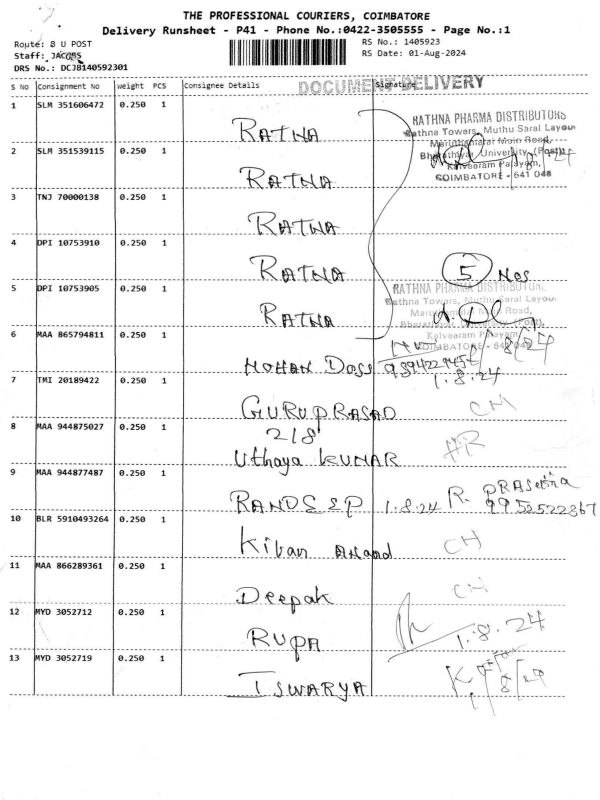 THE PROFESSIONAL COURIERS, COIMBATORE
Delivery Runsheet - P41 - Phone No.:0422-3505555 - Page No.:1
Route: B U POST
RS No.: 1405923
Staff: JACOBS
RS Date: 01-Aug-2024
DRS No.: DCJB140592301
DOCUMENT DELIVERY
S No Consignment No Weight PCS Consignee Details Signature
1 SLM 351606472 0.250 1 RATNA
RATHNA PHARMA DISTRIBUTORS
Rathna Towers, Muthu Saral Layout
Maruthamalai Main Road,
Bharathiyar University (Post),
Kalveeram Palayam,
COIMBATORE - 641 046
2 SLM 351539115 0.250 1 RATNA
3 TNJ 70000138 0.250 1 RATNA
4 DPI 10753910 0.250 1 RATNA
5 Nos
5 DPI 10753905 0.250 1 RATNA
RATHNA PHARMA DISTRIBUTORS
Rathna Towers, Muthu Saral Layout
Maruthamalai Main Road,
Bharathiyar University (Post),
Kalveeram Palayam,
COIMBATORE - 641 046
6 MAA 865794811 0.250 1 MOHAN DOSS
1.8.24
7 TMI 20189422 0.250 1 GURUPRASAD CH
218
8 MAA 944875027 0.250 1 Uthaya KUMAR HR
9 MAA 944877487 0.250 1 RANDEEP 1.8.24 R.
9952522367
10 BLR 5910493264 0.250 1 Kiran Anand CH
11 MAA 866289361 0.250 1 Deepak CH
12 MYD 3052712 0.250 1 RUPA 1.8.24
13 MYD 3052719 0.250 1 ISWARYA